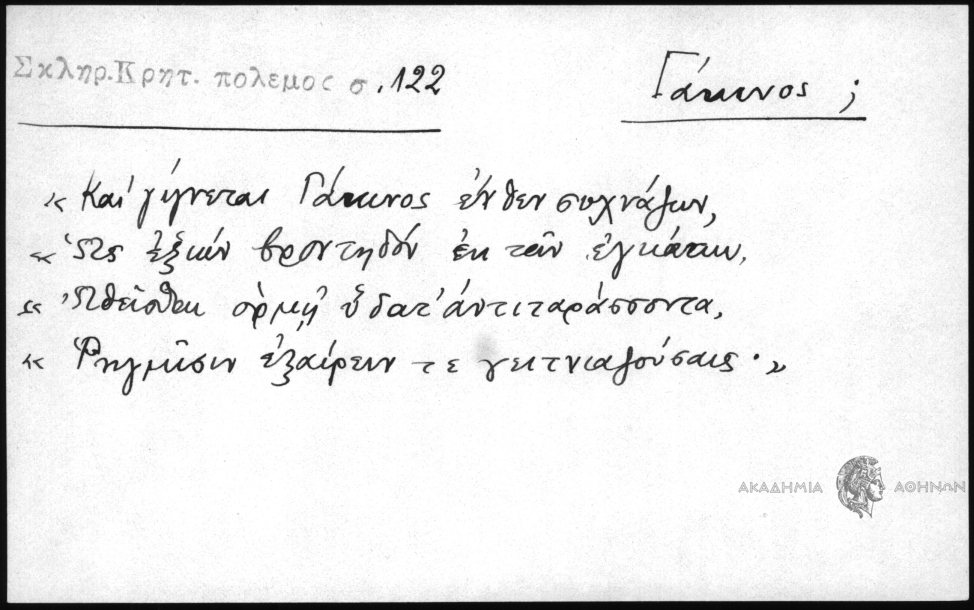 Σκληρ. Κρητ. πολεμος σ. 122
Γάκινος ;
« Καὶ γίγνεται Γάκινος ἔνθεν συχνάζων,
« ἐξιὼν βροντηδὸν ἐκ τῶν ἐγκάτων,
« ὠθεῖσθαι ὁρμῇ ὕδατ' ἀντιταράσσοντα,
« Ῥηγμῖσιν ἐξαίρειν τε γειτνιαζούσαις · »
ΑΚΑΔΗΜΙΑ ΑΘΗΝΩΝ